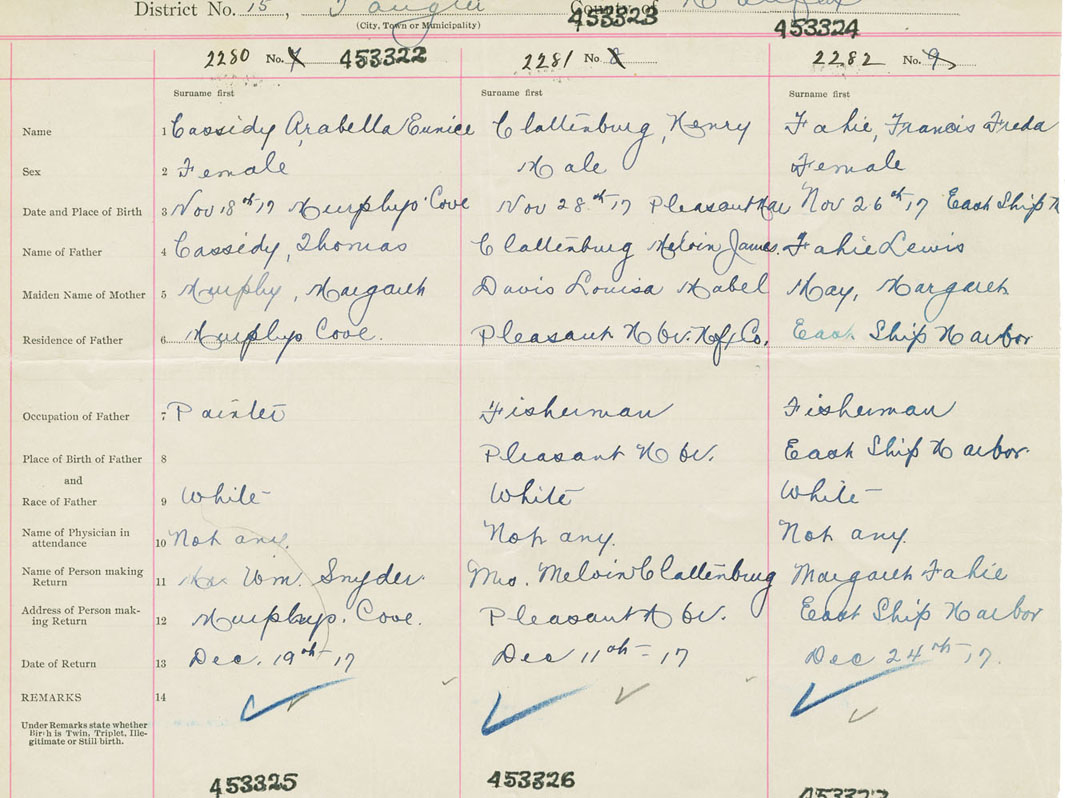 District No. 15, Tangier County of Halifax
(City, Town or Municipality)
453323
453324
2280 No. 7 453322 2281 No. 8 2282 No. 9
Surname first Surname first Surname first
Name 1 Cassidy, Arabella Eunice Clattenburg, Henry Fahie, Francis Freda
Sex 2 Female Male Female
Date and Place of Birth 3 Nov 18th 17 Murphys Cove Nov 28th 17 Pleasant Har Nov 26th 17 East Ship H
Name of Father 4 Cassidy, Thomas Clattenburg Melvin James. Fahie Lewis
Maiden Name of Mother 5 Murphy, Margaret Davis Louisa Mabel May, Margaret
Residence of Father 6 Murphys Cove. Pleasant Hbr. Hfx Co. East Ship Harbor
Occupation of Father 7 Painter Fisherman Fisherman
Place of Birth of Father 8 Pleasant Hbr. East Ship Harbor
and
Race of Father 9 White White White
Name of Physician in
attendance 10 Not any. Not any. Not any.
Name of Person making
Return 11 Wm. Snyder. Mrs. Melvin Clattenburg Margaret Fahie
Address of Person mak-
ing Return 12 Murphys. Cove. Pleasant Hbr. East Ship Harbor
Date of Return 13 Dec. 19th 17 Dec 11th = 17 Dec 24th 17.
REMARKS 14
Under Remarks state whether
Birth is Twin, Triplet, Ille-
gitimate or Still birth.
453325 453326